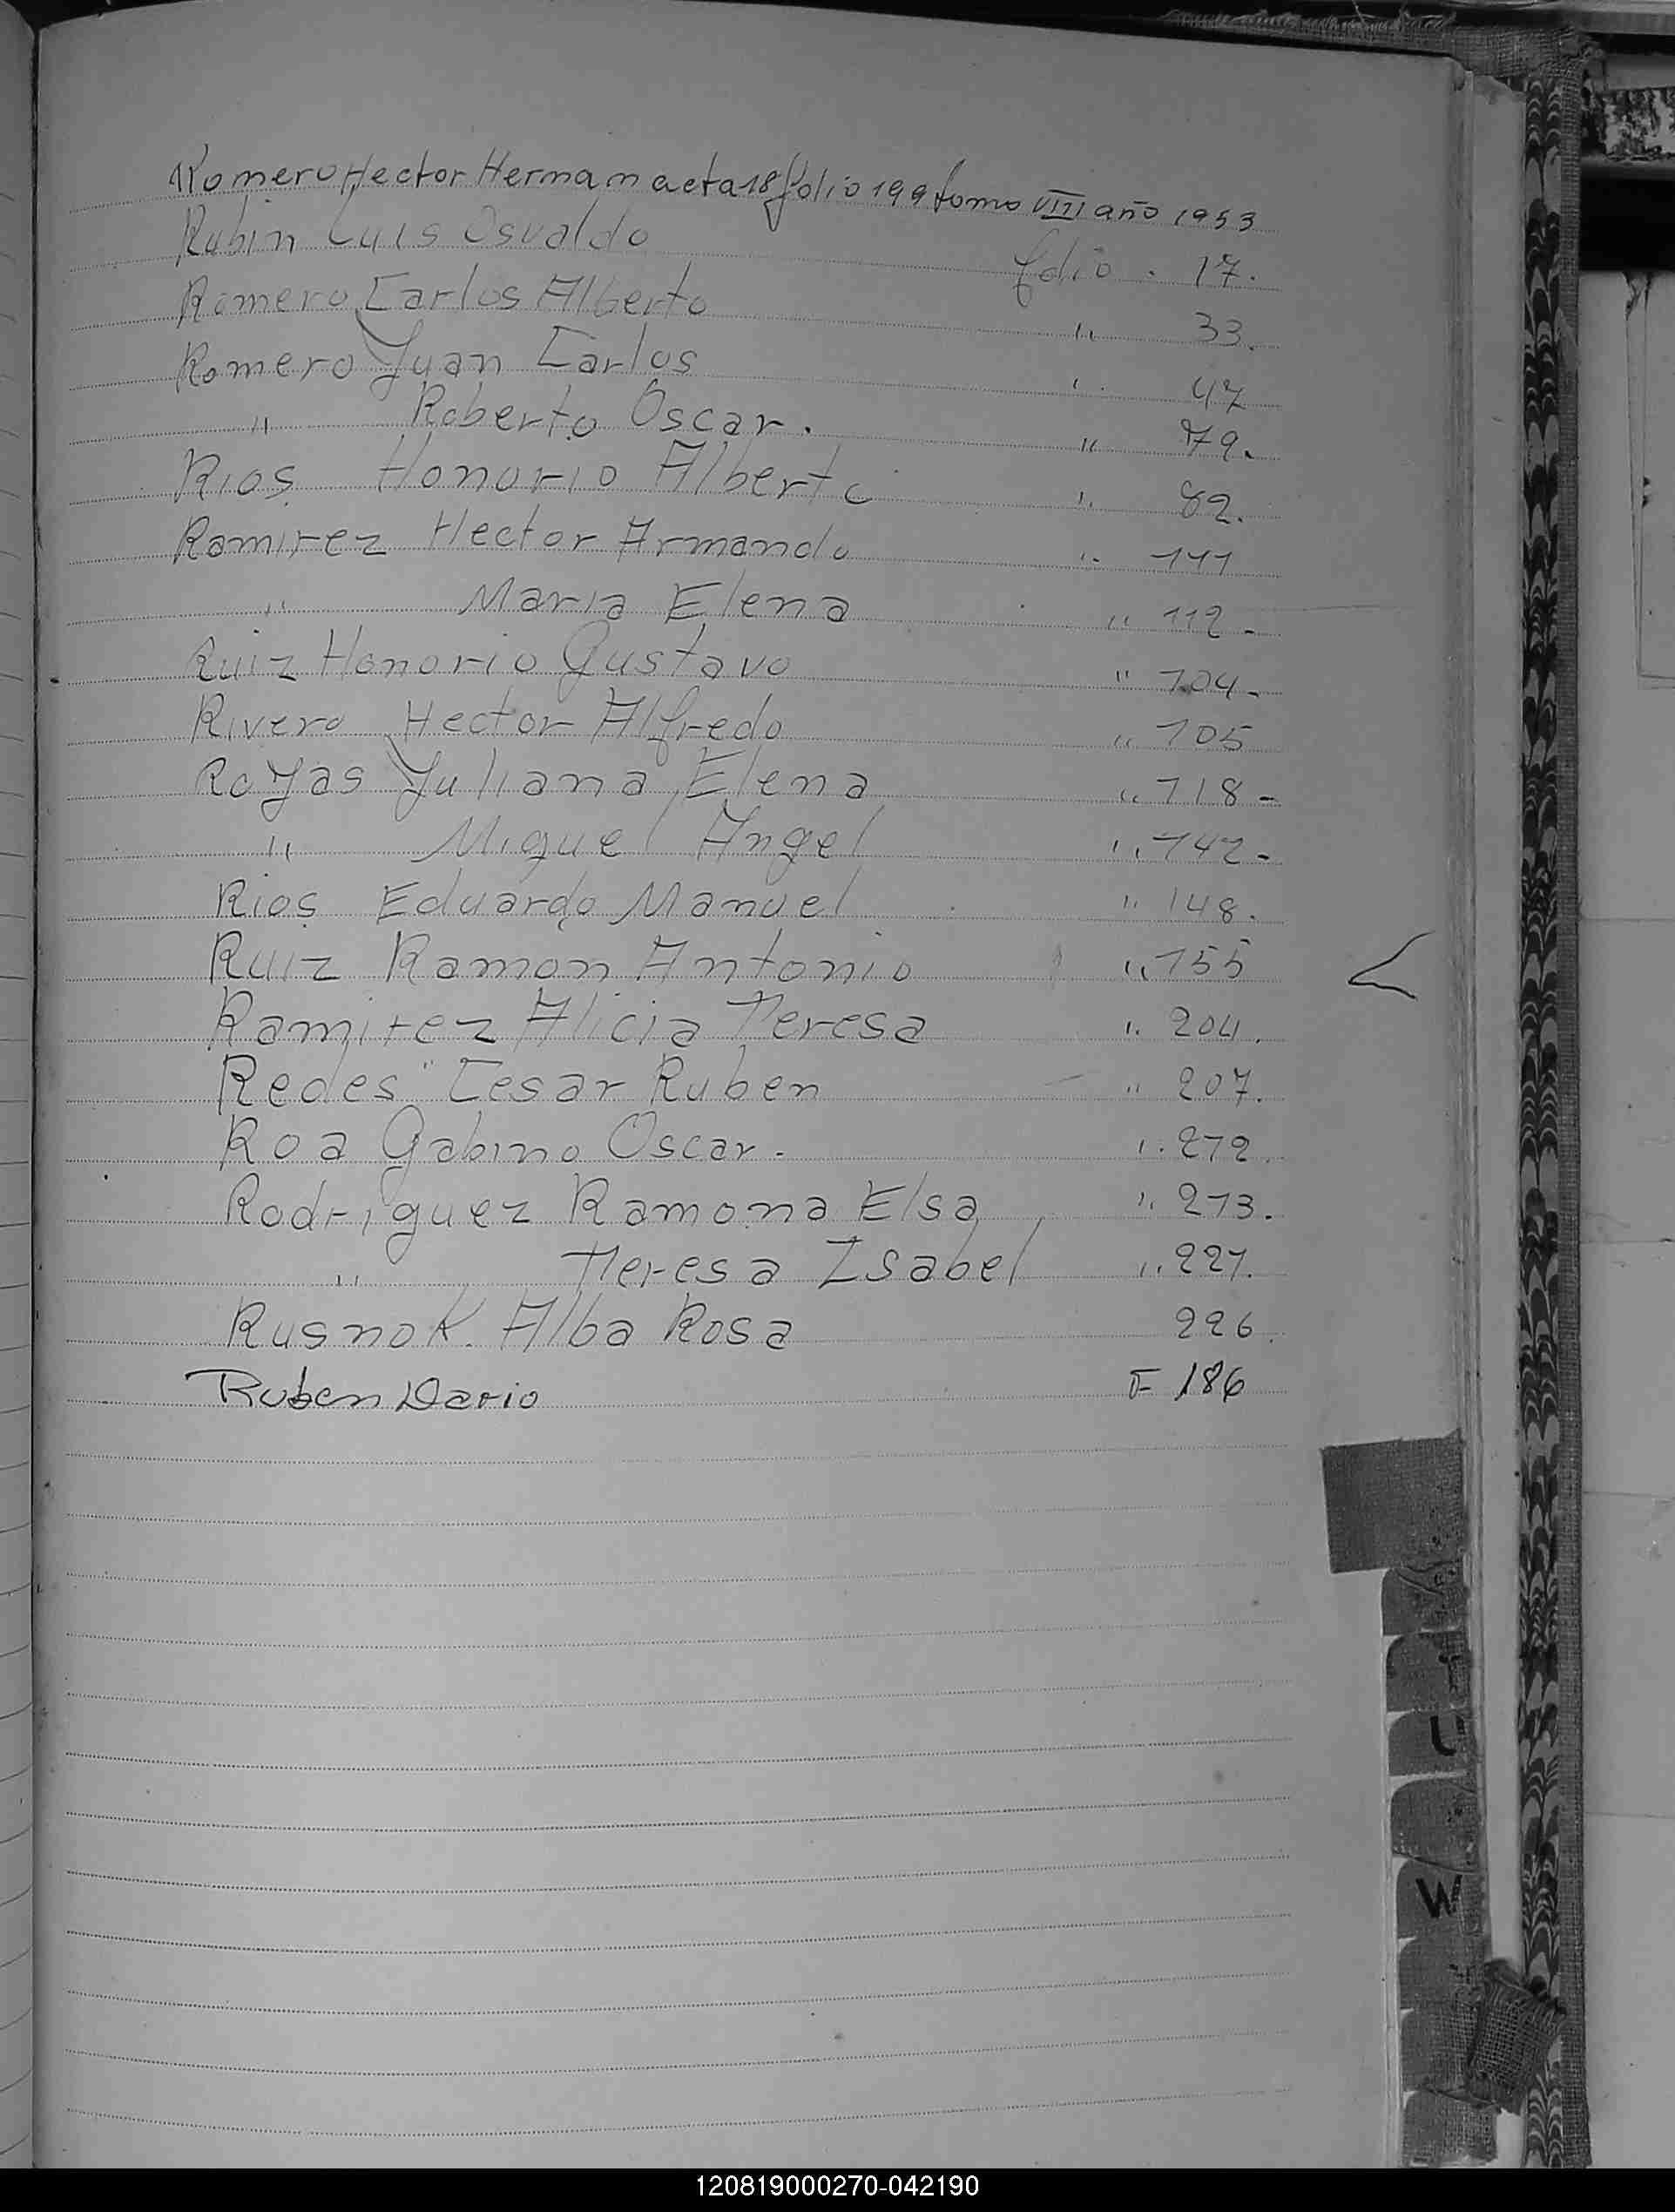 Romero Hector Herman acta 18 folio 199 tomo VIII año 1953
Rubin Luis Osvaldo folio . 17.
Romero Carlos Alberto " 33.
Romero Juan Carlos " 47
" Roberto Oscar. " 79.
Rios Honorio Alberto " 82.
Ramirez Hector Armando " 111
" Maria Elena " 112 -
Ruiz Honorio Gustavo " 104 -
Rivero Hector Alfredo " 105
Royas Juliana Elena " 118 -
" Miguel Angel " 142 -
Rios Eduardo Manuel " 148.
Ruiz Ramon Antonio " 155
Ramirez Alicia Teresa " 204.
Redes Cesar Ruben " 207.
Roa Gabino Oscar. " 212.
Rodriguez Ramona Elsa " 213.
" Teresa Isabel " 221.
Rusnok. Alba Rosa 226.
Ruben Dario F 186
T
U
W
120819000270-042190